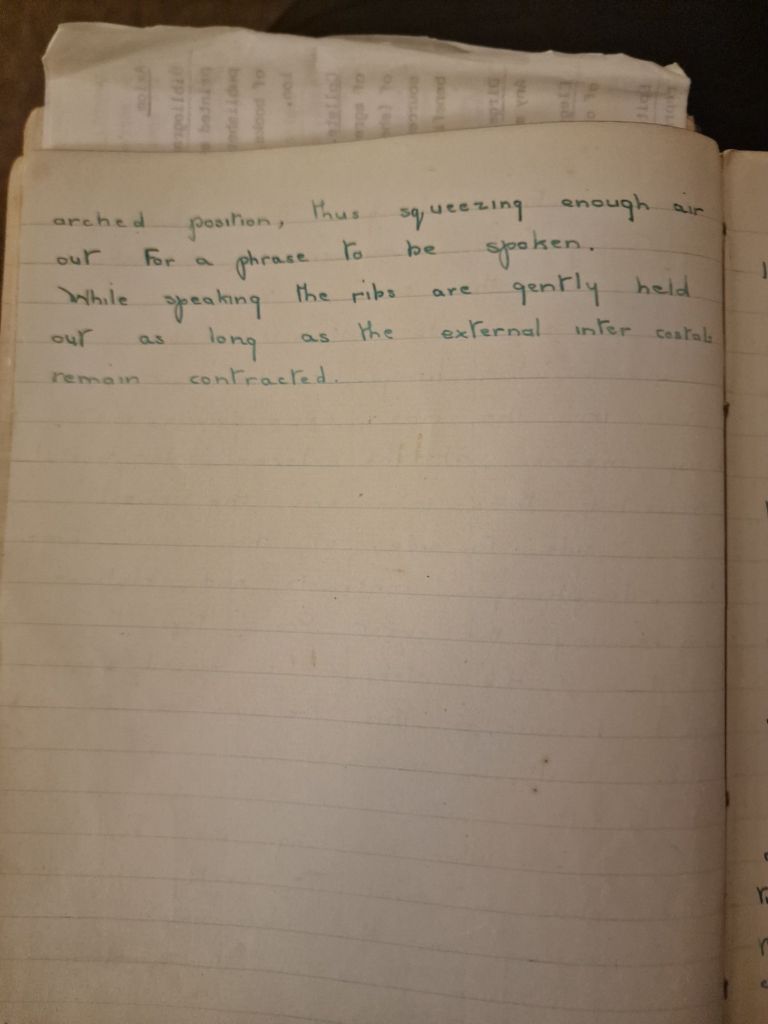 arched position, thus squeezing enough air
out for a phrase to be spoken.
While speaking the ribs are gently held
out as long as the external inter costals
remain contracted.